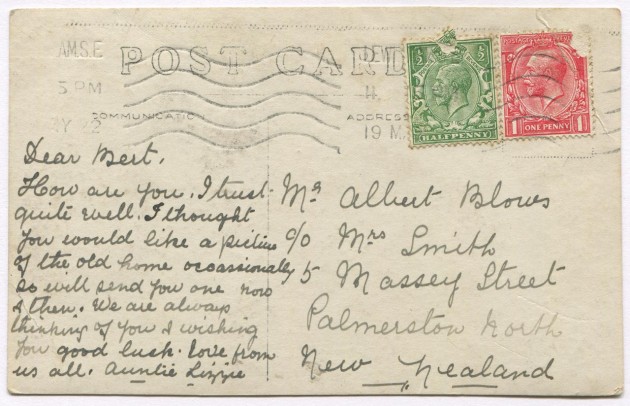 AMS.E
5 PM
Y 22
POST CARD
COMMUNICATIO
ADDRESS
19 M
HALFPENNY
1 ONE PENNY 1
Dear Bert.
How are you. I trust
quite well. I thought
you would like a picture
of the old home ocassionally
so will send you one now
& then. We are always
thinking of you & wishing
you good luck. Love from
us all. Auntie Lizzie
Mr Albert Blows
c/o Mrs Smith
5 Massey Street
Palmerston North
New Zealand